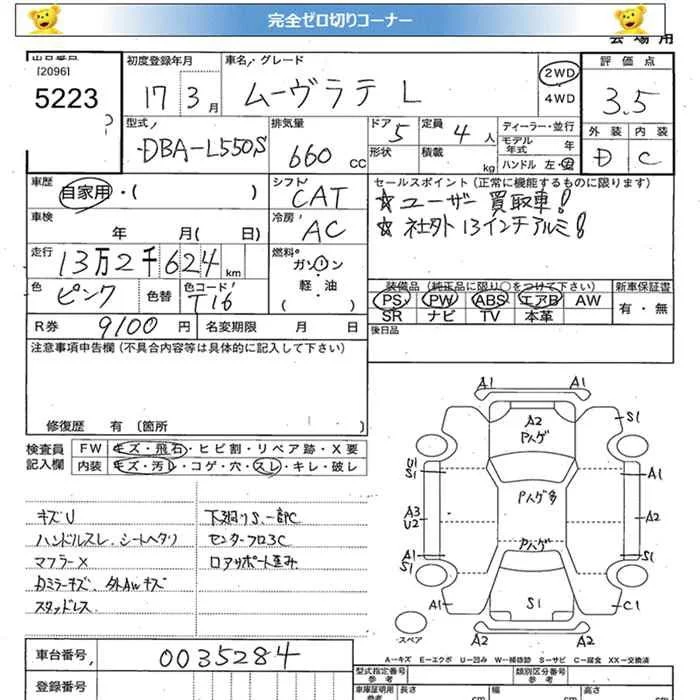 完全ゼロ切りコーナー
会場用
出品番号
[2096]
5223
初度登録年月
17 3月
車名／グレード
ムーヴラテ L
2WD
4WD
評価点
3.5
外装 内装
D C
型式
DBA-L550S
排気量
660 CC
ドア 5
形状
定員 4 人
積載 kg
ディーラー・並行
モデル年式 年
ハンドル 左・右
車歴
自家用・( )
シフト
CAT
セールスポイント（正常に機能するものに限ります）
☆ユーザー買取車!
☆社外13インチアルミ!
車検 年 月( 日)
冷房
AC
走行
13万2千624 km
燃料
ガソリン
軽・油
( )
色 ピンク 色替 色コード T16
装備品（純正品に限り○をつけて下さい）
PS PW ABS エアB AW
SR ナビ TV 本革
新車保証書
有・無
R券 9100 円 名変期限 月 日
後日品
注意事項申告欄（不具合内容等は具体的に記入して下さい）
修復歴 有〔箇所
検査員記入欄
FW キズ・飛石・ヒビ割・リペア跡・X要
内装 キズ・汚レ・コゲ・穴・スレ・キレ・破レ
キズU
ハンドルスレ.シートヘタリ
マフラーX
カミラーキズ.外AWキズ
スタッドレス
下廻りS.一部C
センターフロ3C
ロアサポート歪み
A1 A1
A2
Pハゲ
S1
U1
S1
A1
Pハゲ多
A3
U2
A2
Pハゲ
A1
S1
A1
S1
A1
S1
C1
A2 A2
スペア
A－キズ E－エクボ U－凹み W－補修跡 S－サビ C－腐食 XX－交換済
車台番号 0035284
登録番号
型式指定番号 参考
類別区分番号 参考
車庫証明用 参考
長さ cm
幅 cm
高さ cm